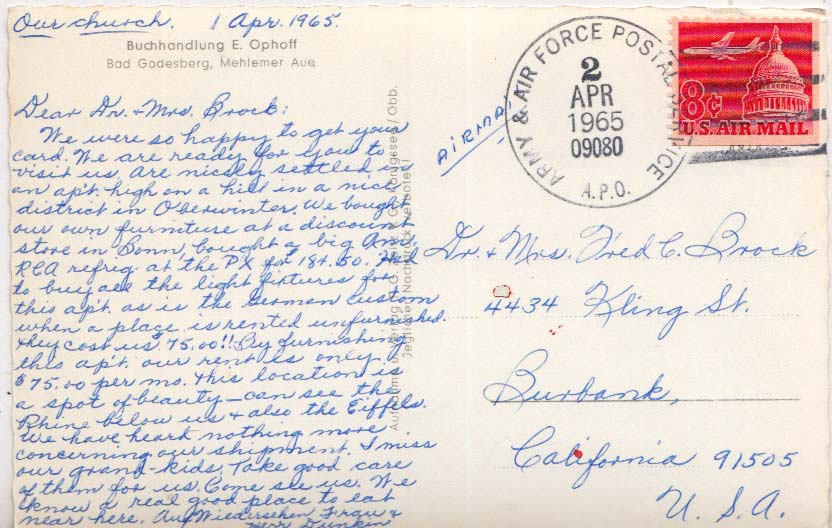 Our church. 1 Apr. 1965.
Buchhandlung E. Ophoff
Bad Godesberg, Mehlemer Aue
Dear Dr. & Mrs. Brock:
We were so happy to get your
card. We are ready for you to
visit us. Are nicely settled in
an apt. high on a hill in a nice
district in Oberwinter. We bought
our own furniture at a discount
store in Bonn, bought a big Am.
RCA refrig. at the PX for 184.50. Had
to buy all the light fixtures for
this apt. as is the German custom
when a place is rented unfurnished.
They cost us 75.00!! By furnishing
this apt. our rent is only
$75.00 per mo. This location is
a spot of beauty - can see the
Rhine below us & also the Eiffels.
We have heard nothing more
concerning our shipment. I miss
our grand-kids. Take good care
of them for us. Come see us. We
know a real good place to eat
near here. Auf Wiedersehen, Frau &
Herr Dunkin
Jegliche Nachdruck verboten!
AIRMAIL
ARMY & AIR FORCE POSTAL SERVICE
2
APR
1965
09080
A.P.O.
8¢
U.S. AIR MAIL
Dr. & Mrs. Fred C. Brock
4434 Kling St.
Burbank,
California 91505
U.S.A.